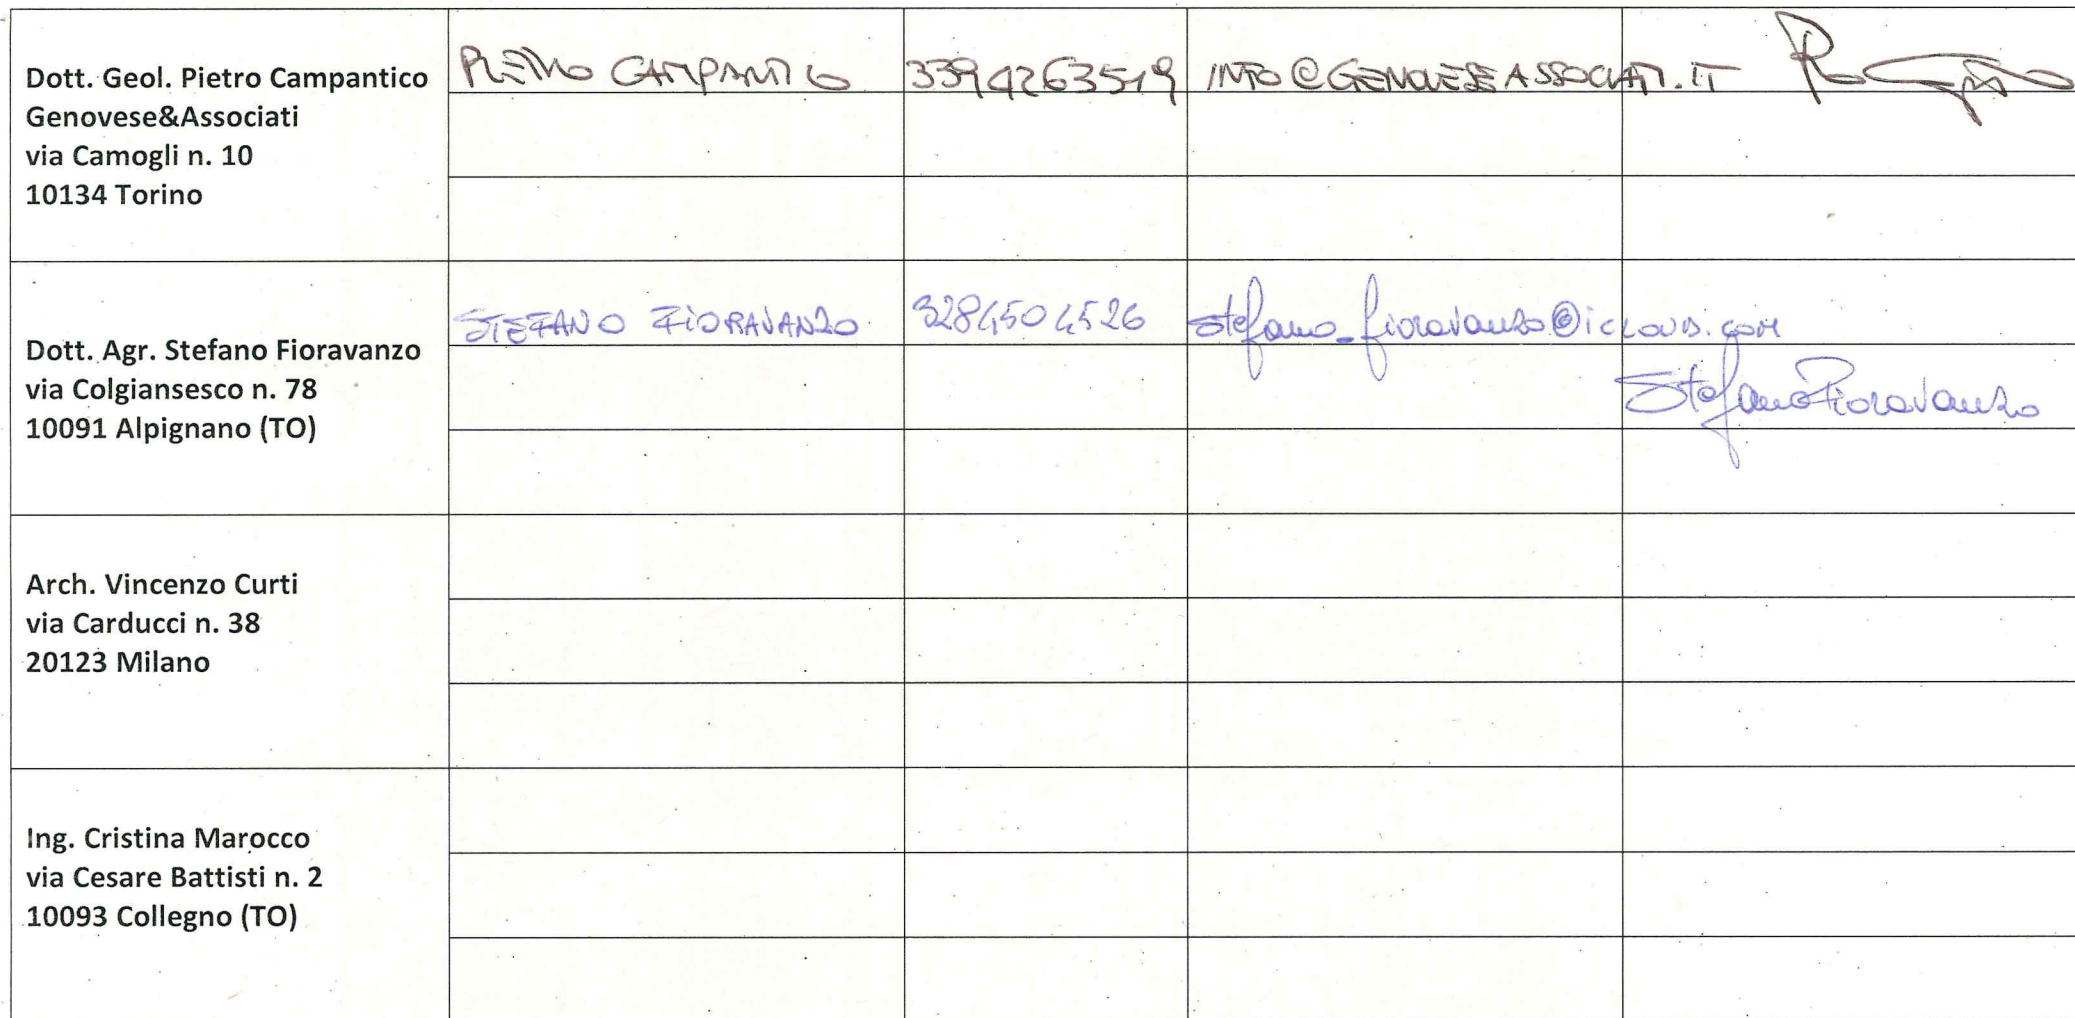 Dott. Geol. Pietro Campantico
Genovese&Associati
via Camogli n. 10
10134 Torino
PIETRO CAMPANTICO 3394263519 INFO@GENOVESEASSOCIATI.IT
Dott. Agr. Stefano Fioravanzo
via Colgiansesco n. 78
10091 Alpignano (TO)
STEFANO FIORAVANZO 3284504526 stefano_fioravanzo@icloud.com
Stefano Fioravanzo
Arch. Vincenzo Curti
via Carducci n. 38
20123 Milano
Ing. Cristina Marocco
via Cesare Battisti n. 2
10093 Collegno (TO)